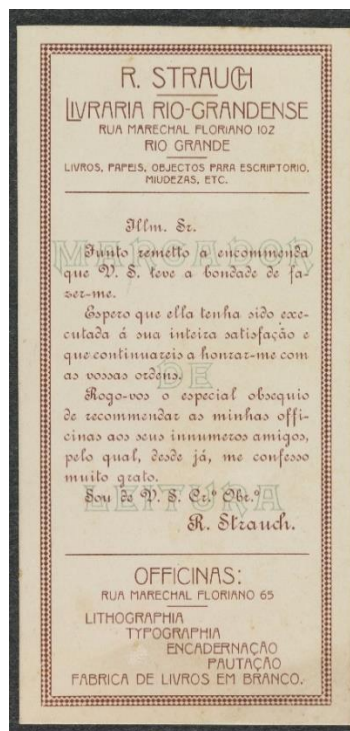 R. STRAUCH
LIVRARIA RIO-GRANDENSE
RUA MARECHAL FLORIANO 102
RIO GRANDE
LIVROS, PAPEIS, OBJECTOS PARA ESCRIPTORIO,
MIUDEZAS, ETC.
Illm. Sr.
MARCADOR
Junto remetto a encommenda
que V. S. teve a bondade de fa-
zer-me.
Espero que ella tenha sido exe-
cutada á sua inteira satisfação e
que continuareis a honrar-me com
as vossas ordens.
DE
Rogo-vos o especial obsequio
de recommendar as minhas offi-
cinas aos seus innumeros amigos,
pelo qual, desde já, me confesso
muito grato.
LEITURA
Sou de V. S. Cr.º Obr.º
R. Strauch.
OFFICINAS:
RUA MARECHAL FLORIANO 65
LITHOGRAPHIA
TYPOGRAPHIA
ENCADERNAÇÃO
PAUTAÇÃO
FABRICA DE LIVROS EM BRANCO.